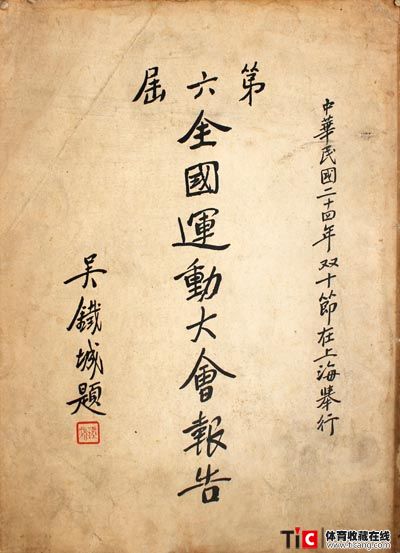 中華民國二十四年双十節在上海舉行
第六屆
全國運動大會報告
吳鐵城題
TiC 体育收藏在线
www.ticang.com